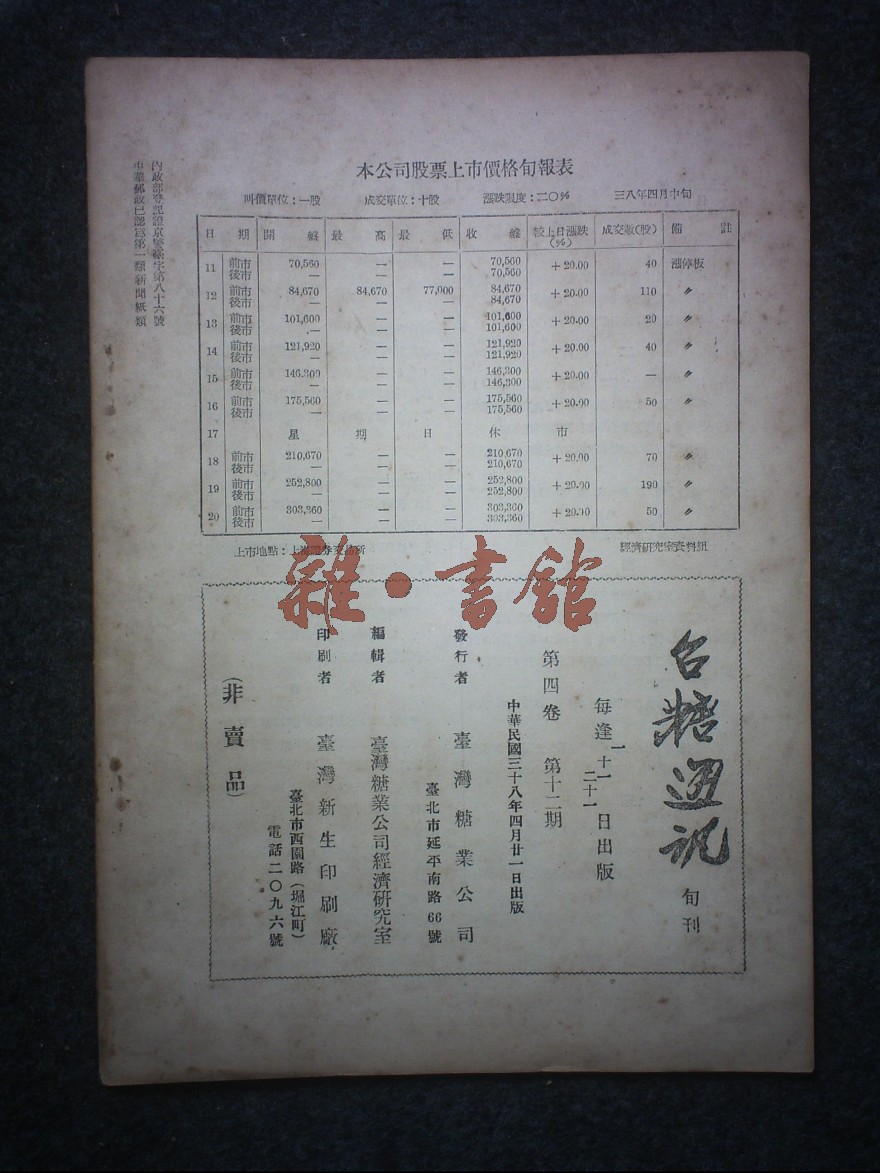 本公司股票上市價格旬報表
叫價單位：一股 成交單位：十股 漲跌限度：二〇% 三八年四月中旬
日 期 開 盤 最 高 最 低 收 盤 較上日漲跌(%) 成交數(股) 備 註
11 前市 70,560 — — 70,560 +20.00 40 漲停板
後市 — — — 70,560
12 前市 84,670 84,670 77,000 84,670 +20.00 110 〃
後市 — — — 84,670
13 前市 101,600 — — 101,600 +20.00 20 〃
後市 — — — 101,600
14 前市 121,920 — — 121,920 +20.00 40 〃
後市 — — — 121,920
15 前市 146,300 — — 146,300 +20.00 — 〃
後市 — — — 146,300
16 前市 175,560 — — 175,560 +20.00 50 〃
後市 — — — 175,560
17 星 期 日 休 市
18 前市 210,670 — — 210,670 +20.00 70 〃
後市 — — — 210,670
19 前市 252,800 — — 252,800 +20.00 190 〃
後市 — — — 252,800
20 前市 303,360 — — 303,360 +20.00 50 〃
後市 — — — 303,360
上市地點：上海證券交易所 經濟研究室資料組
內政部登記證京警臺字第八十六號
中華郵政已認為第一類新聞紙類
雜·書館
台糖通訊 旬刊
每逢一 十一 二十一日出版
第四卷 第十二期
中華民國三十八年四月廿一日出版
發行者 臺灣糖業公司
臺北市延平南路66號
編輯者 臺灣糖業公司經濟研究室
印刷者 臺灣新生印刷廠
臺北市西園路（堀江町）
電話二〇九六號
（非賣品）